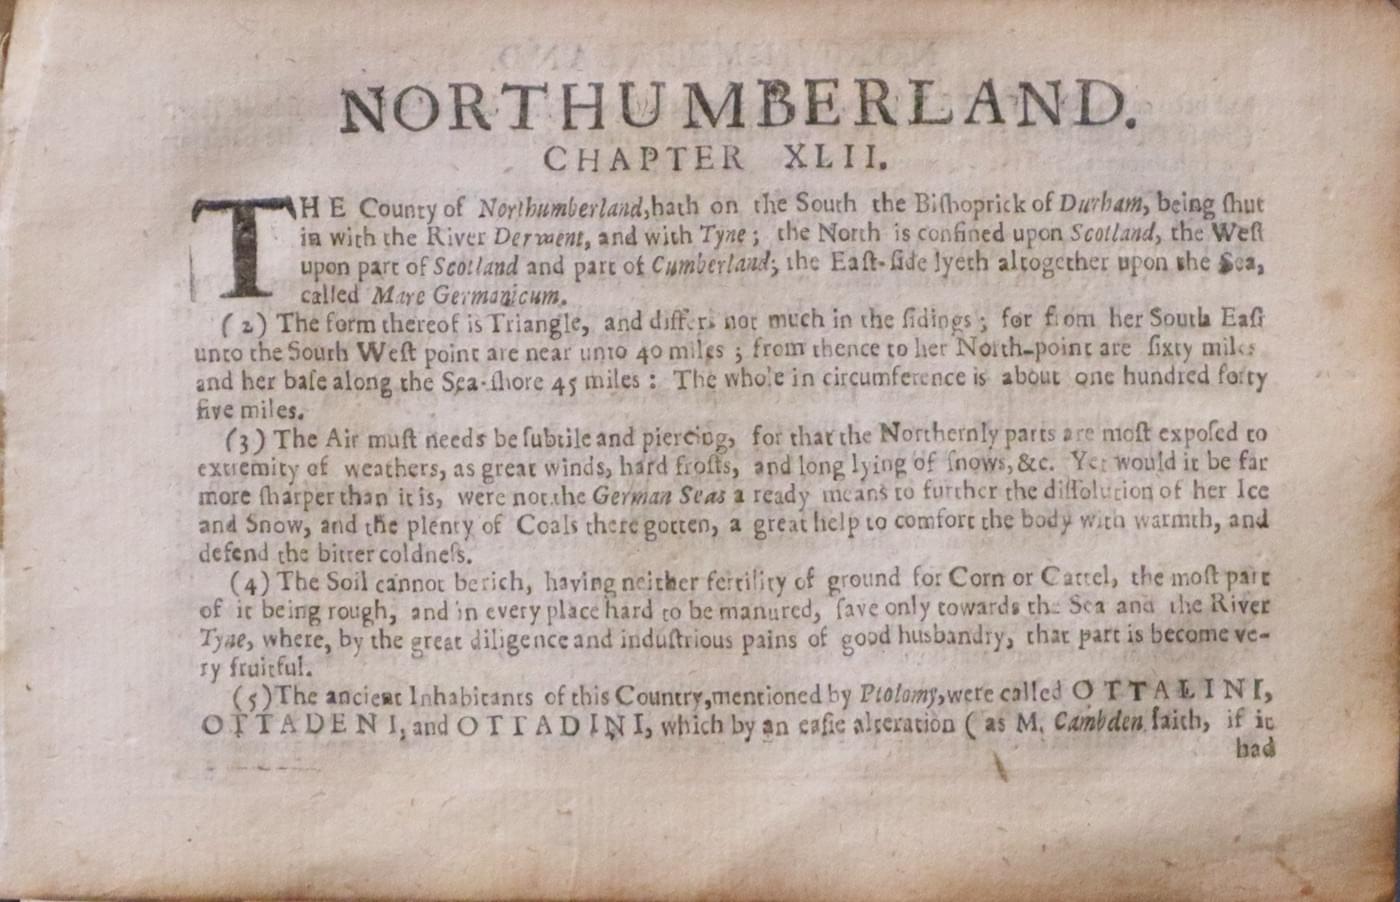 NORTHUMBERLAND.
CHAPTER XLII.
THE County of Northumberland, hath on the South the Biſhoprick of Durham, being ſhut
in with the River Derwent, and with Tyne; the North is confined upon Scotland, the Weſt
upon part of Scotland and part of Cumberland; the Eaſt-ſide lyeth altogether upon the Sea,
called Mare Germanicum.
(2) The form thereof is Triangle, and differs not much in the ſidings; for from her South Eaſt
unto the South Weſt point are near unto 40 miles; from thence to her North-point are ſixty miles
and her baſe along the Sea-ſhore 45 miles: The whole in circumference is about one hundred forty
five miles.
(3) The Air muſt needs be ſubtile and piercing, for that the Northernly parts are moſt expoſed to
extremity of weathers, as great winds, hard froſts, and long lying of ſnows, &c. Yet would it be far
more ſharper than it is, were not the German Seas a ready means to further the diſſolution of her Ice
and Snow, and the plenty of Coals there gotten, a great help to comfort the body with warmth, and
defend the bitter coldneſs.
(4) The Soil cannot be rich, having neither fertility of ground for Corn or Cattel, the moſt part
of it being rough, and in every place hard to be manured, ſave only towards the Sea and the River
Tyne, where, by the great diligence and induſtrious pains of good husbandry, that part is become ve-
ry fruitful.
(5) The ancient Inhabitants of this Country, mentioned by Ptolomy, were called OTTALINI,
OTTADENI, and OTTADINI, which by an eaſie alteration (as M. Cambden ſaith, if it
had